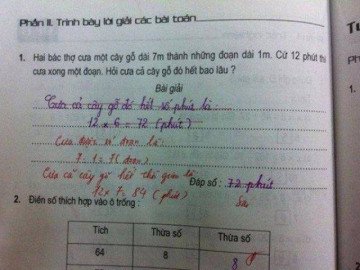 Phần II. Trình bày lời giải các bài toán
1. Hai bác thợ cưa một cây gỗ dài 7m thành những đoạn dài 1m. Cứ 12 phút thì
cưa xong một đoạn. Hỏi cưa cả cây gỗ đó hết bao lâu ?
Bài giải
Cưa cả cây gỗ đó hết số phút là :
12 x 6 = 72 (phút)
Cưa được số đoạn là:
7 : 1 = 7 (đoạn)
Cưa cả cây gỗ hết thời gian là
12 x 7 = 84 (phút)
Đáp số : 72 phút
Sai
2. Điền số thích hợp vào ô trống :
Tích Thừa số Thừa số
64 8 8